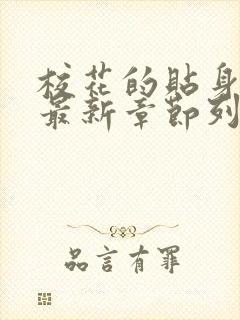 校花的貼身
最新章節列
品言有罪